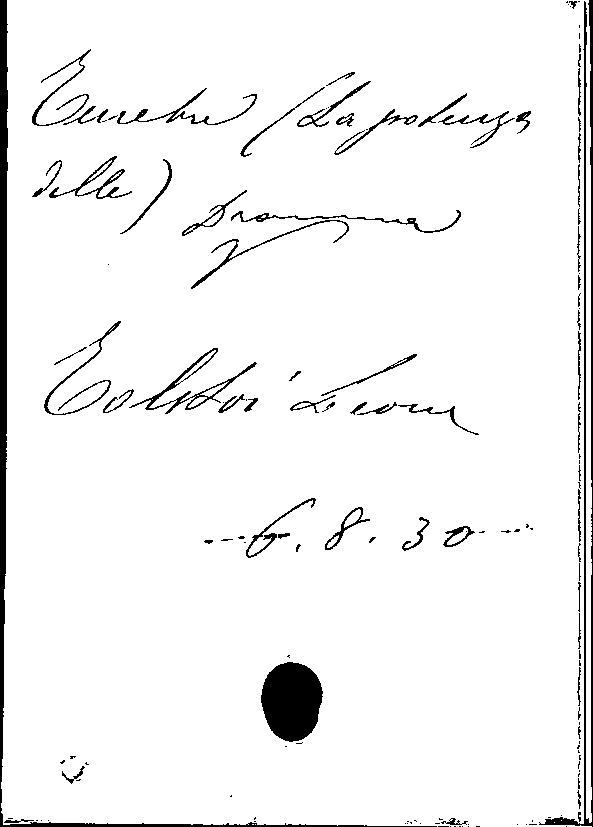 Tenebre (La potenza
delle)
Dramma
Tolstoi Leone
6. 8. 30